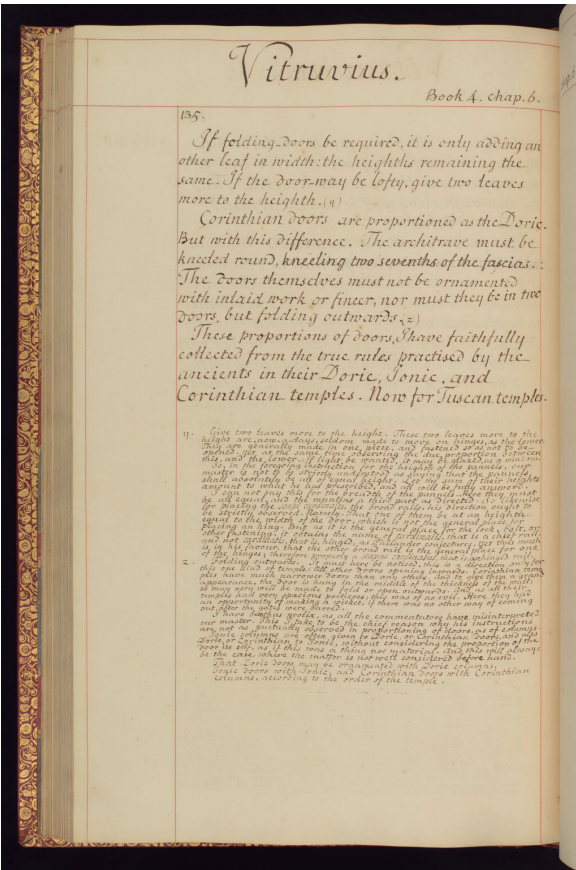 Vitruvius.
Book 4. chap. 6.
135.
If folding-doors be required, it is only adding an
other leaf in width: the heighths remaining the
same. If the door-way be lofty, give two leaves
more to the heighth. (y)
Corinthian doors are proportioned as the Doric.
But with this difference. The architrave must be
kneeled round, kneeling two sevenths of the fascias.
The doors themselves must not be ornamented
with inlaid work or fineer, nor must they be in two
doors, but folding outwards. (z)
These proportions of doors, I have faithfully
collected from the true rules practised by the
ancients in their Doric, Ionic, and
Corinthian temples. Now for Tuscan temples.
y. Give two leaves more to the height. These two leaves more to the
height are, now-a-days, seldom made to move on hinges, as the lower.
They are generally made in one piece, and fastened so as not to be
opened. Yet at the same time observing the due proportion between
them and the lower. If light be wanted, it may be glazed, as a window.
So, in the foregoing instruction for the heighth of the pannels, our
master is not to be strictly understood as saying that the pannels,
shall absolutely be all of equal height. Let the sum of their heights
amount to what he has prescribed, and all will be fully answer'd.
I can not say this for the breadth of the pannels. Here they must
be all equal, and the munnions a third part as directed. So likewise
for placing the the broad rails, his direction ought to
be strictly observed. Namely, that one of them be at an heighth
equal to the width of the door, which is not the general place for
placing an hinge. But as it is the general place for the lock, bolt, or
other fastening, it obtains the name of that is chief rail:
and not that is, hinged, as Philander conjectures. Yet thus much
is in his favour, that the other broad rail is the general place for one
of the hinges; therefore properly a that is a hinged rail.
z. Folding outwards. It must here be noticed, this is a direction only for
this one kind of temple: All other doors opening inwards. Corinthian tem
ples have much narrower doors than any others. And to give them a grand
appearance, the door is hung in the middle of the thickness of the wall;
so may very well be made to fold or open outwards. And, as all these
temples had very spacious porticoes; this was of no evil. Here they had
an opportunity of making a wicket, if there was no other way of coming
out, after the gates were barred.
I have been thus prolix, as all the commentators have misinterpreted
our master. This I take to be the chief reason why his instructions
are not as punctually observed in proportioning of doors, as of columns.
Ionic columns are often given to Doric, or Corinthian doors; and also
Doric, or Corinthian to Ionic, without considering the proportion of the
door its self, as if this was a thing not material. And this will always
be the case, where the matter is not well considered before hand.
That Doric doors may be ornamented with Doric columns,
Ionic doors with Ionic, and Corinthian doors with Corinthian
columns, according to the order of the temple.